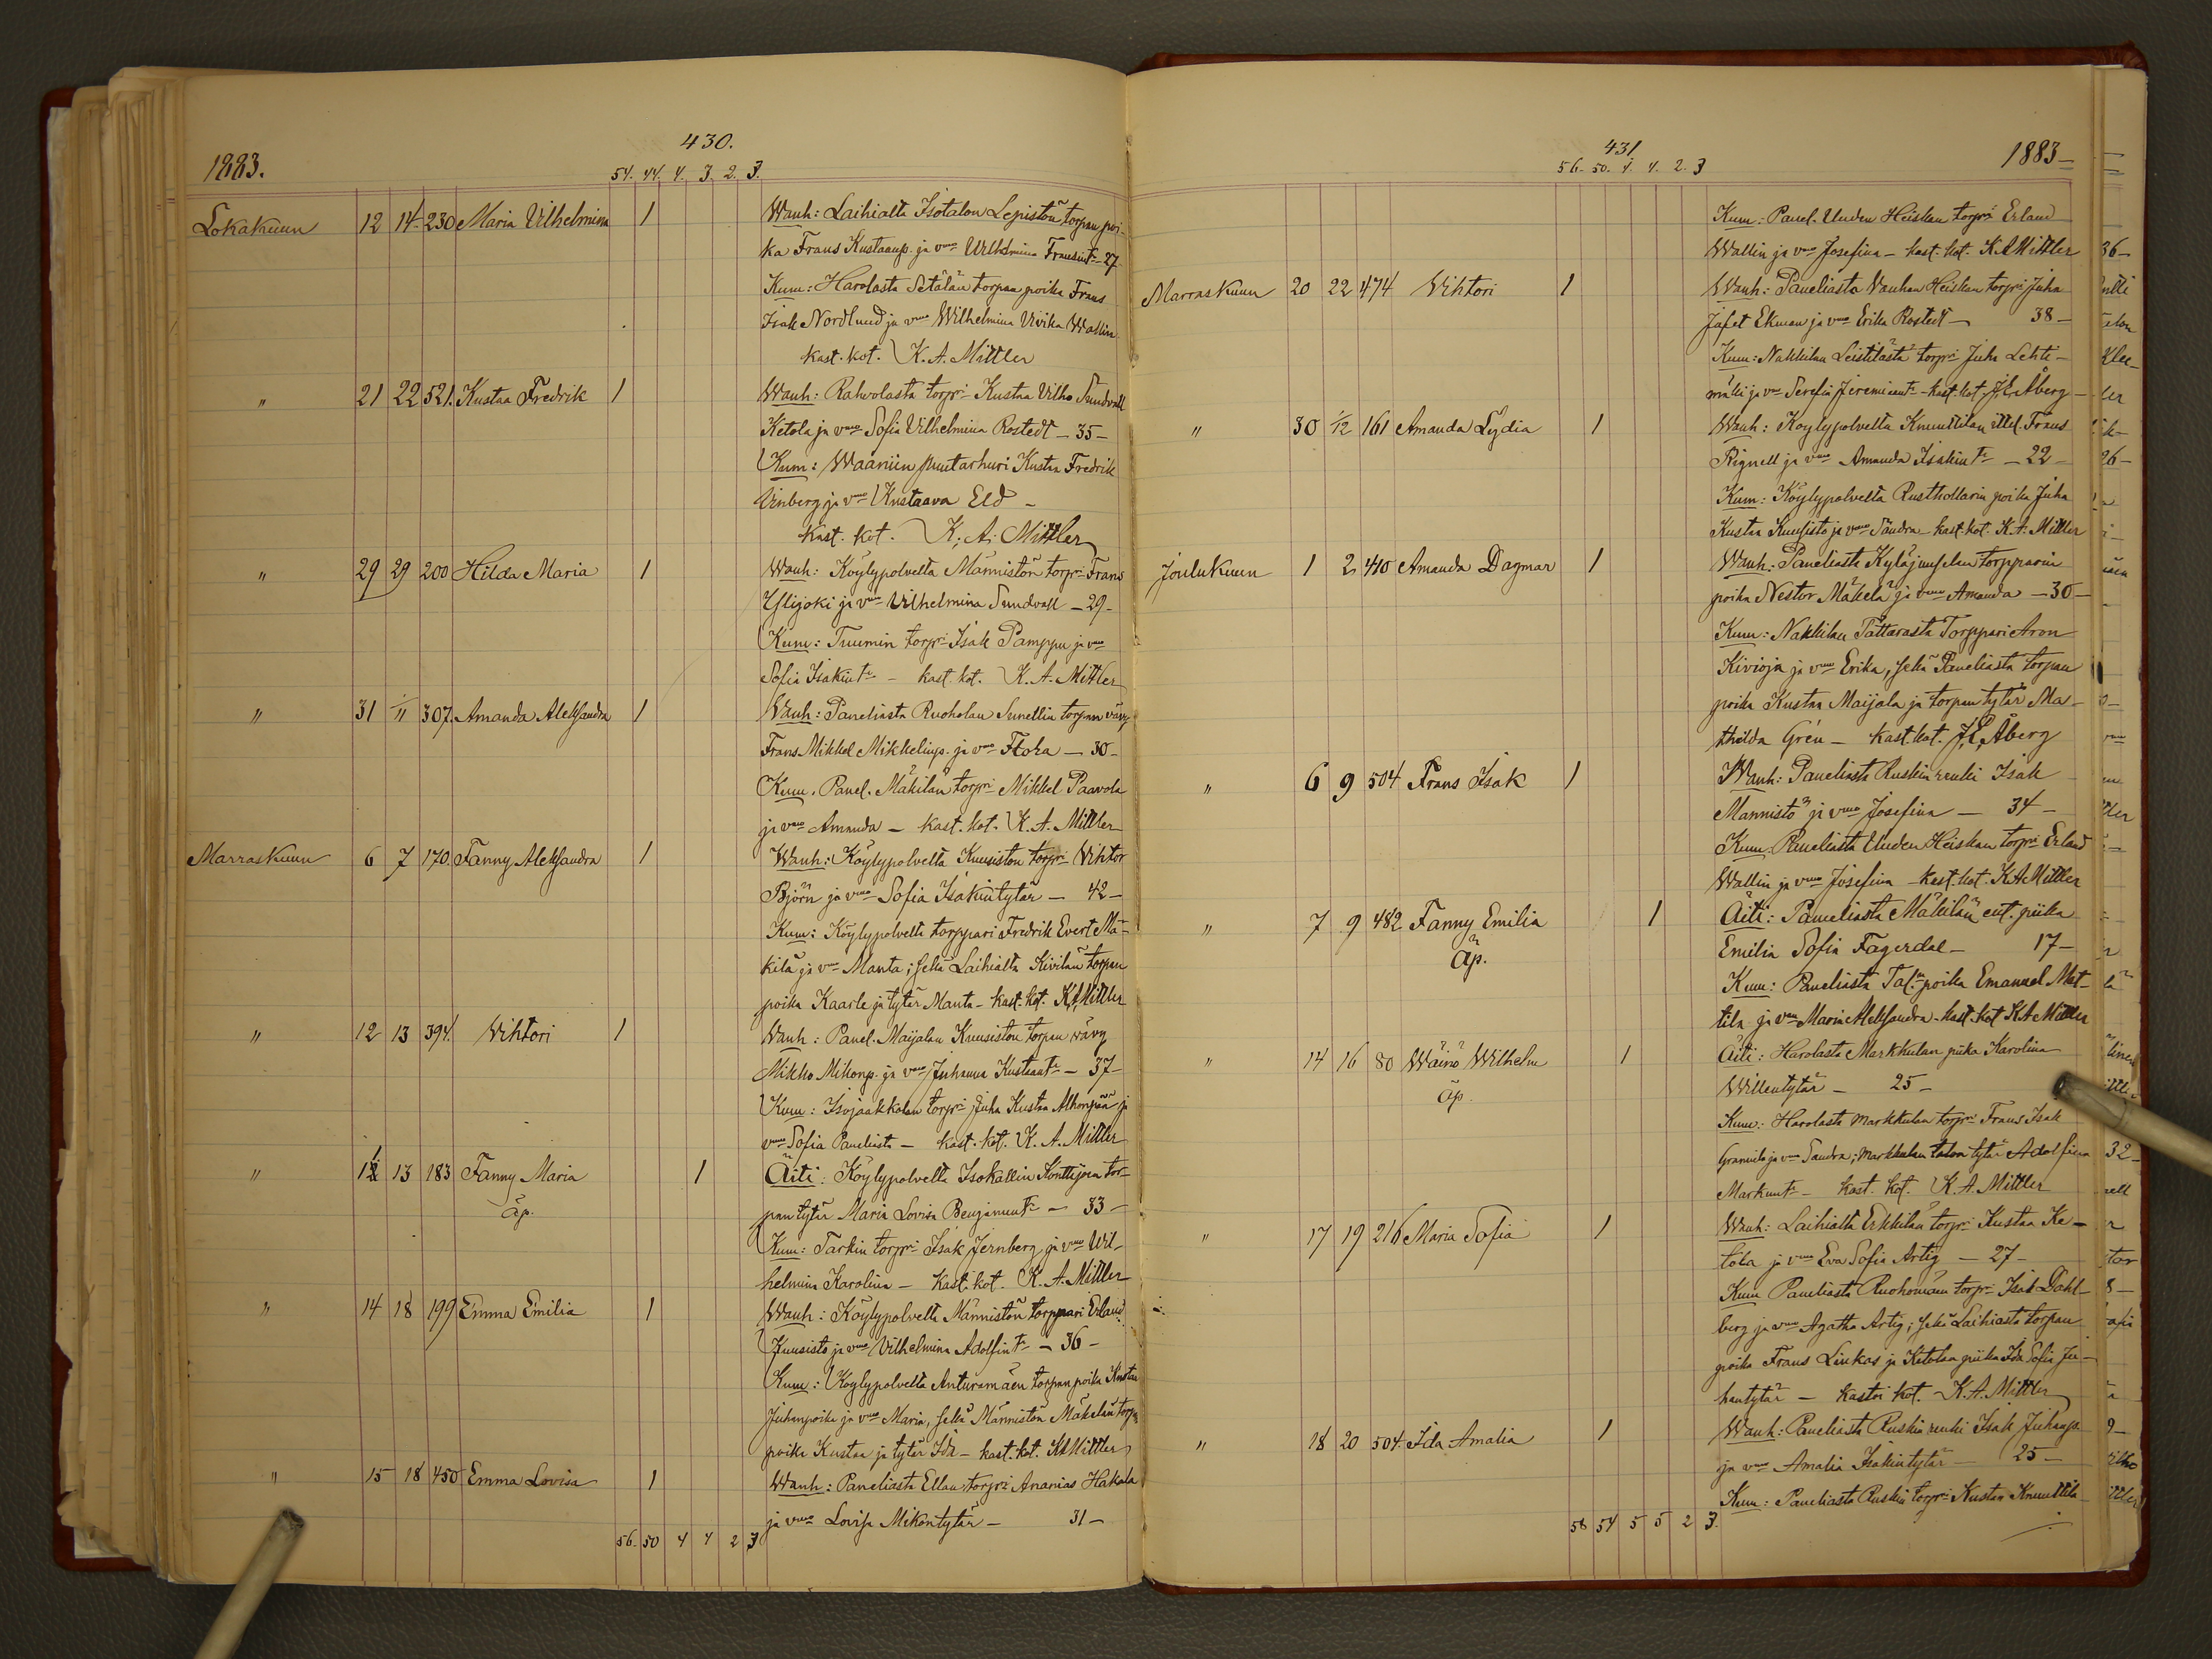 430.
1883.
54. 44. 4. 3. 2. 3.
Lokakuun 12 14 230 Maria Vilhelmina 1 Wanh: Laihialta Isotalon Lepistön torpan poi-
ka Frans Kustaanp. ja vmo Vilhelmina Fransint. 27
Kum: Harolasta Setälän torpan poika Frans
Isak Nordlund ja vmo Wilhelmina Vivika Wallin
kast. kot. K. A. Mittler
" 21 22 521. Kustaa Fredrik 1 Wanh: Rahvolasta torpri Kustaa Vilho Sundvall
Ketola ja vmo Sofia Vilhelmina Rostedt - 35 -
Kum: Waaniin puutarhuri Kustaa Fredrik
Vinberg ja vmo Kustaava Eld -
kast. kot. K. A. Mittler
" 29 29 200 Hilda Maria 1 Wanh: Köylypolvelta Männistön torpri Frans
Ylijoki ja vmo Vilhelmina Sundvall - 29 -
Kum: Tuumin torpri Isak Pamppu ja vmo
Sofia Isakint. - kast. kot. K. A. Mittler
" 31 1/11 307. Amanda Aleksandra 1 Wanh: Paneliasta Ruoholan torpan vävy
Frans Mikkel Mikkelinp. ja vmo Flora - 30 -
Kum. Panel. Mäkilän torpri Mikkel Paavola
ja vmo Amanda - kast. kot. K. A. Mittler
Marraskuun 6 7 170. Fanny Aleksandra 1 Wanh: Köylypolvelta Kuusiston torpri Vihtor
Björn ja vmo Sofia Isakintytär - 42 -
Kum: Köylypolvelta torppari Fredrik Evert Mä-
kilä ja vmo Manta; sekä Laihialta Kivilän torpan
poika Kaarle ja tytär Manta - kast. kot. K. A. Mittler
" 12 13 394. Vihtori 1 Wanh: Panel. Maijalan Kuusiston torpan vävy
Mikko Mikonp. ja vmo Juhanna Kustaant. - 37 -
Kum: Isojaakkolan torpri Juha Kustaa Alhonpää ja
vmo Sofia Paneliasta - kast. kot. K. A. Mittler
" 13 183 Fanny Maria 1 Äiti: Köylypolvelta Isokallin Konttijoen tor-
äp. pan tytär Maria Lovisa Benjamint. - 33 -
Kum: Tarkin torpri Isak Jernberg ja vmo Wil-
helmina Karolina - Kast. kot. K. A. Mittler
" 14 18 199 Emma Emilia 1 Wanh: Köylypolvelta Männistön torppari Erland
Kuusisto ja vmo Vilhelmina Adolfint. - 36 -
Kum: Köylypolvelta Anturamäen torpan poika Kustaa
Juhanpoika ja vmo Maria, sekä Männistön Mäkelän torp.
poika Kustaa ja tytär Ida - kast. kot. K. A. Mittler
" 15 18 450 Emma Lovisa 1 Wanh: Paneliasta Ellan torpri Ananias Hakala
ja vmo Lovisa Mikontytär - 31 -
56. 50 4 4 2 3
431
1883 -
56. 50. 4. 4. 2. 3
Kum: Panel. Uuden Heiskan torpri Erland
Wallin ja vmo Josefina - kast. kot. K A Mittler
Marraskuun 20 22 474 Vihtori 1 Wanh: Paneliasta Vanhan Heiskan torpri Juha
Jafet Ekman ja vmo Erika Rostedt - 38 -
Kum: Nakkilan Leistilästä torpri Juha Lehti-
mäki ja vmo Serefia Jeremient. - kast. kot. J. E. Åberg -
" 30 1/12 161 Amanda Lydia 1 Wanh: Köylypolvelta Knuuttilan ittel. Frans
Rignell ja vmo Amanda Isakint. - 22 -
Kum: Köylypolvelta Rusthollarin poika Juha
Kustaa Kuusisto ja vmo Sandra - kast. kot. K. A. Mittler
Joulukuun 1 2 410 Amanda Dagmar 1 Wanh: Paneliasta Kyläjuuselan torpparin
poika Nestor Mäkelä ja vmo Amanda - 30 -
Kum: Nakkilan Tattarasta Torppari Aron
Kivioja ja vmo Erika, sekä Paneliasta torpan
poika Kustaa Maijala ja torpan tytär Ma-
thilda Grén - kast. kot. J. E. Åberg
" 6 9 504 Frans Isak 1 Wanh: Paneliasta Ruskin renki Isak
Männistö ja vmo Josefina - 34 -
Kum. Paneliasta Uuden Heiskan torpri Erland
Wallin ja vmo Josefina - kast. kot. K A Mittler
" 7 9 482 Fanny Emilia 1 Äiti: Paneliasta Mäkilän ent. piika
äp. Emilia Sofia Fagerdal - 17 -
Kum: Paneliasta Tal. poika Emanuel Mat-
tila ja vmo Maria Aleksandra - kast. kot. K. A. Mittler
" 14 16 80 Wäinö Wilhelm 1 Äiti: Harolasta Markkulan piika Karolina
äp. Willentytär - 25 -
Kum: Harolasta Markkulan torpri Frans Isak
Granvik ja vmo Sandra; Markkulan talon tytär Adolfiina
Markunt. - kast. kot. K. A. Mittler
" 17 19 216 Maria Sofia 1 Wanh: Laihialta Erkkilän torpri Kustaa Ke-
tola ja vmo Eva Sofia Artig - 27 -
Kum Paneliasta Ruohomaan torpri Isak Dahl-
berg ja vmo Agatha Artig; sekä Laihiasta torpan
poika Frans Linkos ja Ketolan piika Ida Sofia Ju-
hantytär - kastoi kot. K. A. Mittler
" 18 20 504. Ida Amalia 1 Wanh: Paneliasta Ruskin renki Isak Juhanp.
ja vmo Amalia Isakintytär - 25 -
Kum: Paneliasta Ruskin torpri Kustaa Knuuttila
58 54 5 5 2 3.